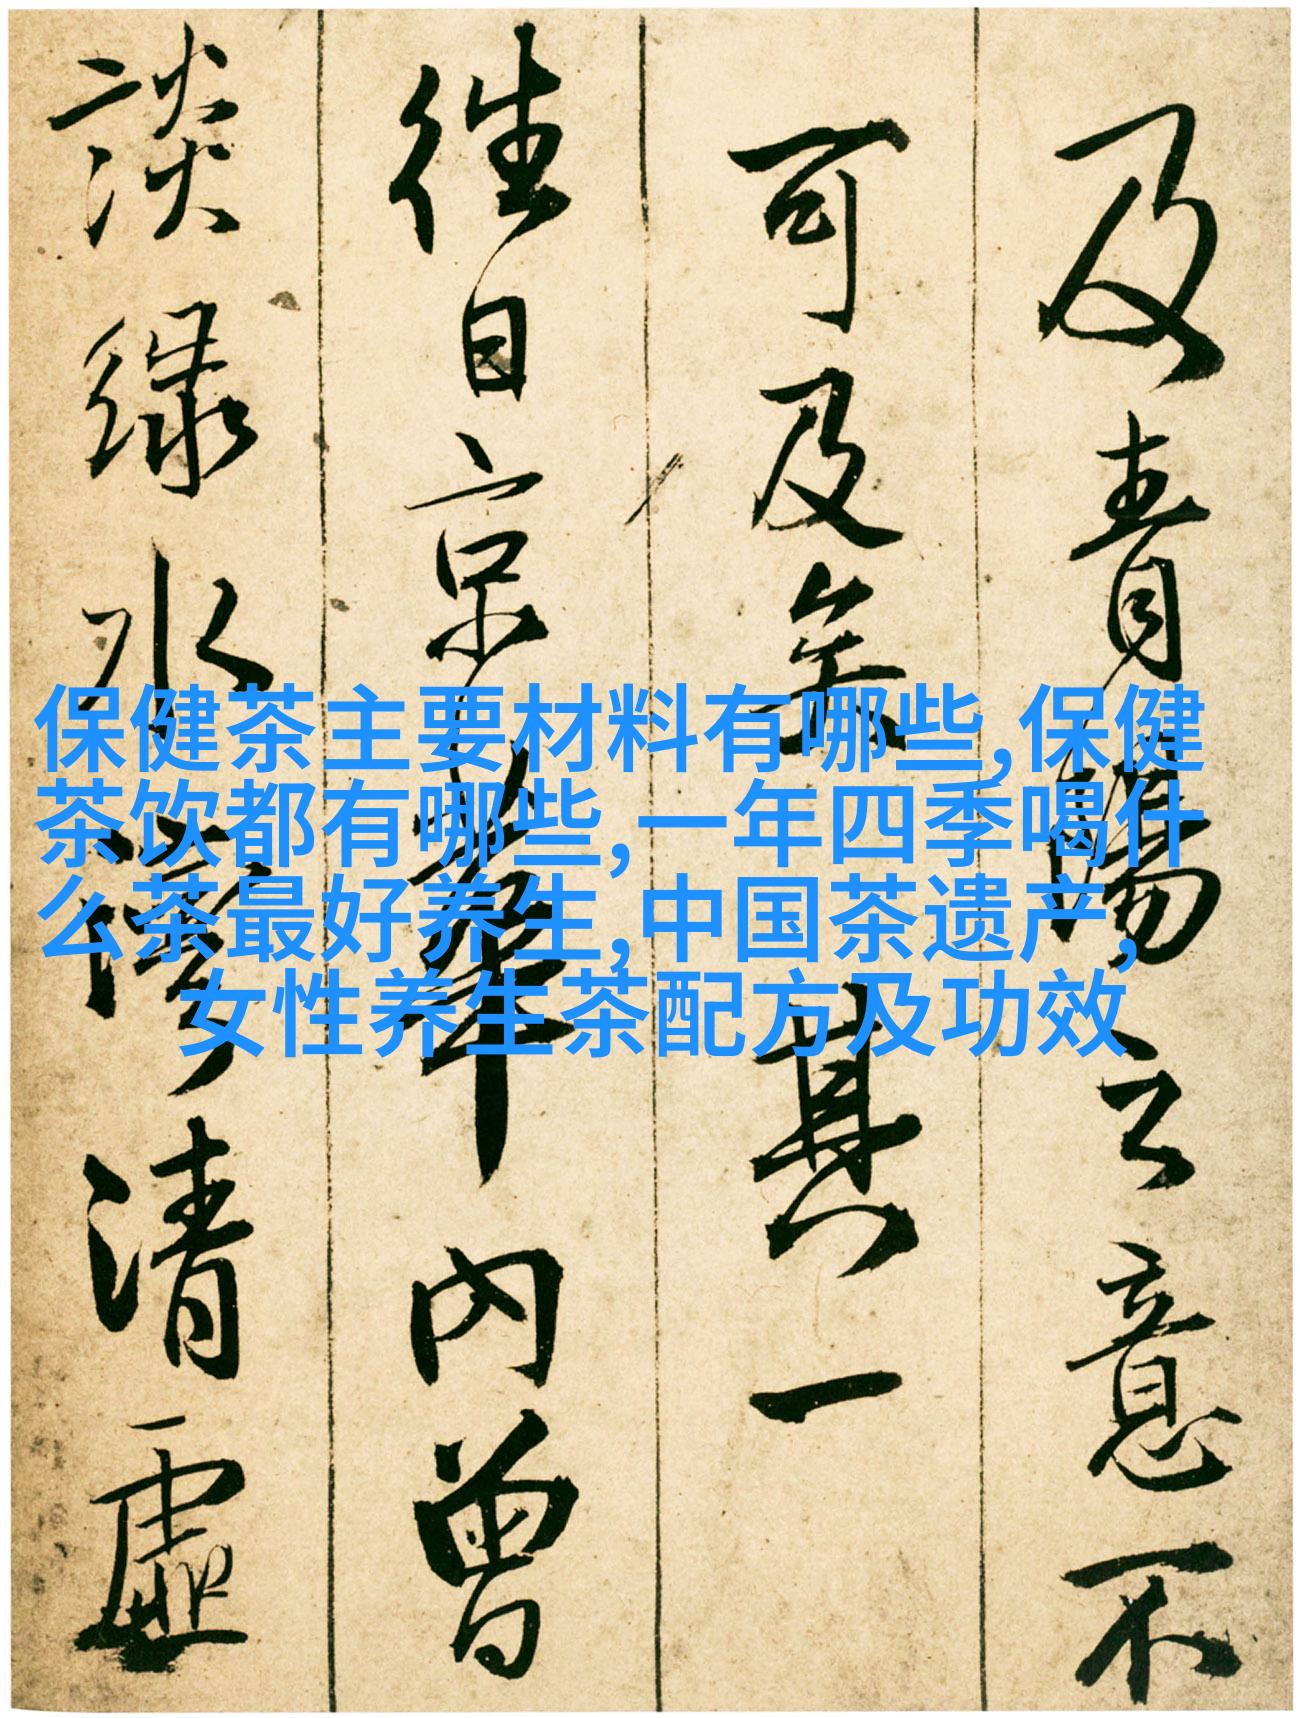 及青陽之意不
可及矣其一
往日京華內曾
談緑水濟清虛
保健茶主要材料有哪些,保健
茶饮都有哪些,一年四季喝什
么茶最好养生,中国茶遗产,
女性养生茶配方及功效